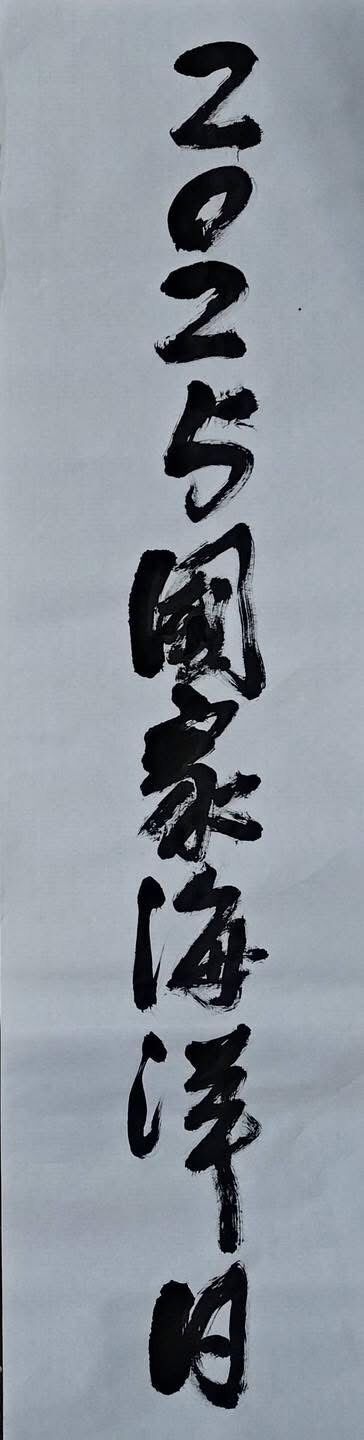 2025國家海洋日